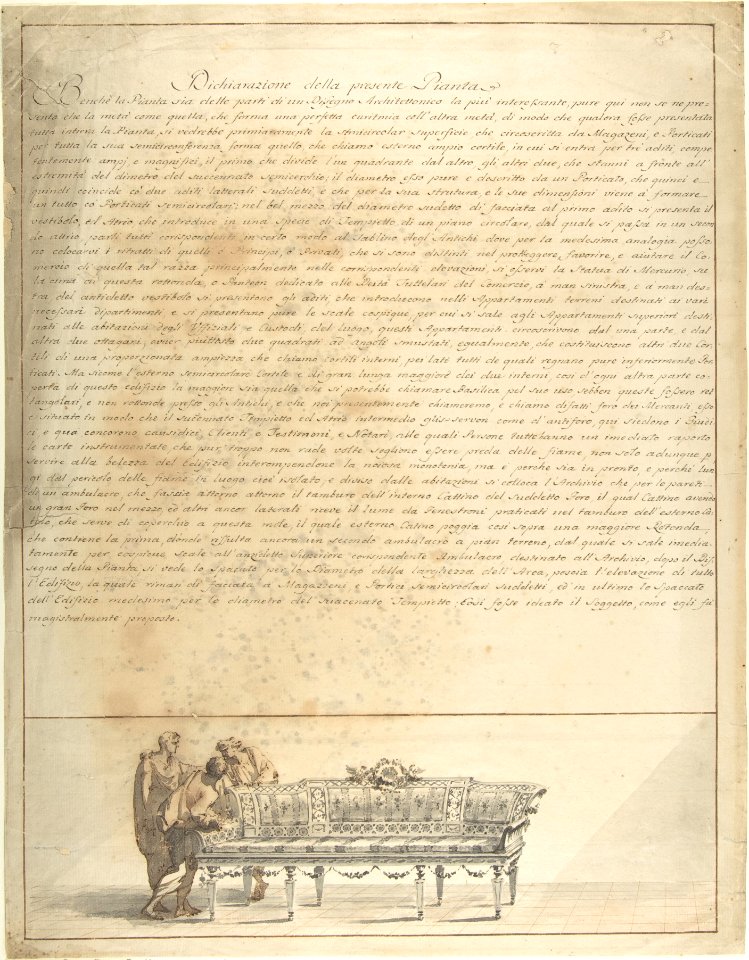 Dichiarazione della presente Pianta
Benchè la Pianta sia delle parti di un Disegno Architettonico la piu' interessante, pure qui non se ne pre-
senta che la metà come quella, che forma una perfetta euritmia coll'altra metà, di modo che qualora fosse presentata
tutta intiera la Pianta, si vedrebbe primieramente la semicircolar superficie che circoscritta da Magazeni, e Porticati
per tutta la sua semicirconferenza forma quello, che chiamo esterno ampio cortile, in cui si entra per tre aditi, compe-
tentemente ampj, e magnifici, il primo che divide l'un quadrante dal altro, gli altri due, che stanno a fronte all'
estremità del dimetro del succennato semicerchio; il diametro esso pure e descritto da un Porticato, che quinci e
quindi coincide co' due aditi latterali sudeletti, e che per la sua strutura, e le sue dimensioni viene a' formare
un tutto co Porticati semicircolari; nel bel mezzo del diametro sudetto di facciata al primo adito si presenta il
vestibolo, et Atrio che introduce in una specie di Tempietto di un piano circolare, dal quale si passa in un secon-
do atrio parti tutti corispondenti in certo modo al Tablino degl'Antichi dove per la medesima analogia posso-
no colocarvi i ritratti di quelli o Principi, o Privati, che si sono distinti nel proteggere, favorire, e aiutare il Co-
mercio di quella tal razza principalmente nelle corrispondenti elevazioni, si osservi la Statua di Mercurio, su
la cima di questa rotonda, o Panteon dedicato alle Deità Tuttelari del Comercio, a man sinistra, e a man des-
tra del antidetto vestibolo si presentono gli aditi, che introducono nelli Appartamenti terreni destinati ai varii
necessari dipartimenti e si presentano pure le scale cospique, per cui si sale agli Appartamenti Superiori desti-
nati alle abitazioni degl'Ufficiali e Custodi, del luogo, questi Appartamenti circoscrivono dal una parte, e dal
altra due ottagani, ovier piuttosto due quadrati ad angoli smussati, egualmente, che costituiscono altri due Cor-
tili di una proporzionata ampiezza che chiamo Cortili interni, pei late tutti de quali regnano pure inferiormente Por-
ticati. Ma sicome l'esterno Semicircolare Cortile e di gran lunga maggiore dei due interni, così d'ogni altra parte co-
perta di questo edifizio la maggiore sia quella che si potrebbe chiamare Basilica pel suo uso, sebben queste fossero ret-
tangolari, e non rottonde presso gli Antichi, e che noi presentemente chiameremo e chiamo difatti foro dei Mercanti esso
e situato in modo che il sucennato Tempietto ed Atrio Intermedio gli servon come d'antiforo, qui siedono i Giudi-
ci, e qua concorono causidici, Clienti, e Testimoni, e Notari, alle quali Persone tutte hanno un imediato raporto
le carte instrumentate, che pur troppo non rade volte sogliono essere preda delle fiame, non solo adunque p
servire alla belezza del Edifizio interompendone la noiosa monotonia, ma e perchè sia in pronto, e perchè lun-
gi dal pericolo delle fiame in luogo cioè isolato, e diviso dalle abitazioni si colloca l'Archivio che per le pareti
di un ambulacro, che fascia attorno attorno il tamburo dell'interno Cattino del Sudeletto Foro, il qual Cattino avendo
un gran foro nel mezzo, ed altri ancor laterali riceve il lume da Fenestroni praticati nel tamburo dell'esterno Ca-
tino, che serve di coperchio a questa mole, il quale esterno Catino poggia così sopra una maggiore Rotonda
che contiene la prima, donde risulta ancora un secondo ambulacro a pian terreno, dal quale si sale imedia-
tamente per cospicue scale all'anzidetto superiore corispondente Ambulacro destinato all'Archivio, dopo il Dis-
segno della Pianta si vede lo Spacato per lo Diametro della larghezza dell'Area, poscia l'elevazione di tutto
l'Edifizio, la quale riman di facciata a Magazzeni, e Portici semicircolari Sudeletti, ed in ultimo lo Spaccato
dell'Edifizio medesimo per lo diametro del sucennato Tempietto. Così fosse ideato il Soggetto, come egli fu'
magistralmente proposto.